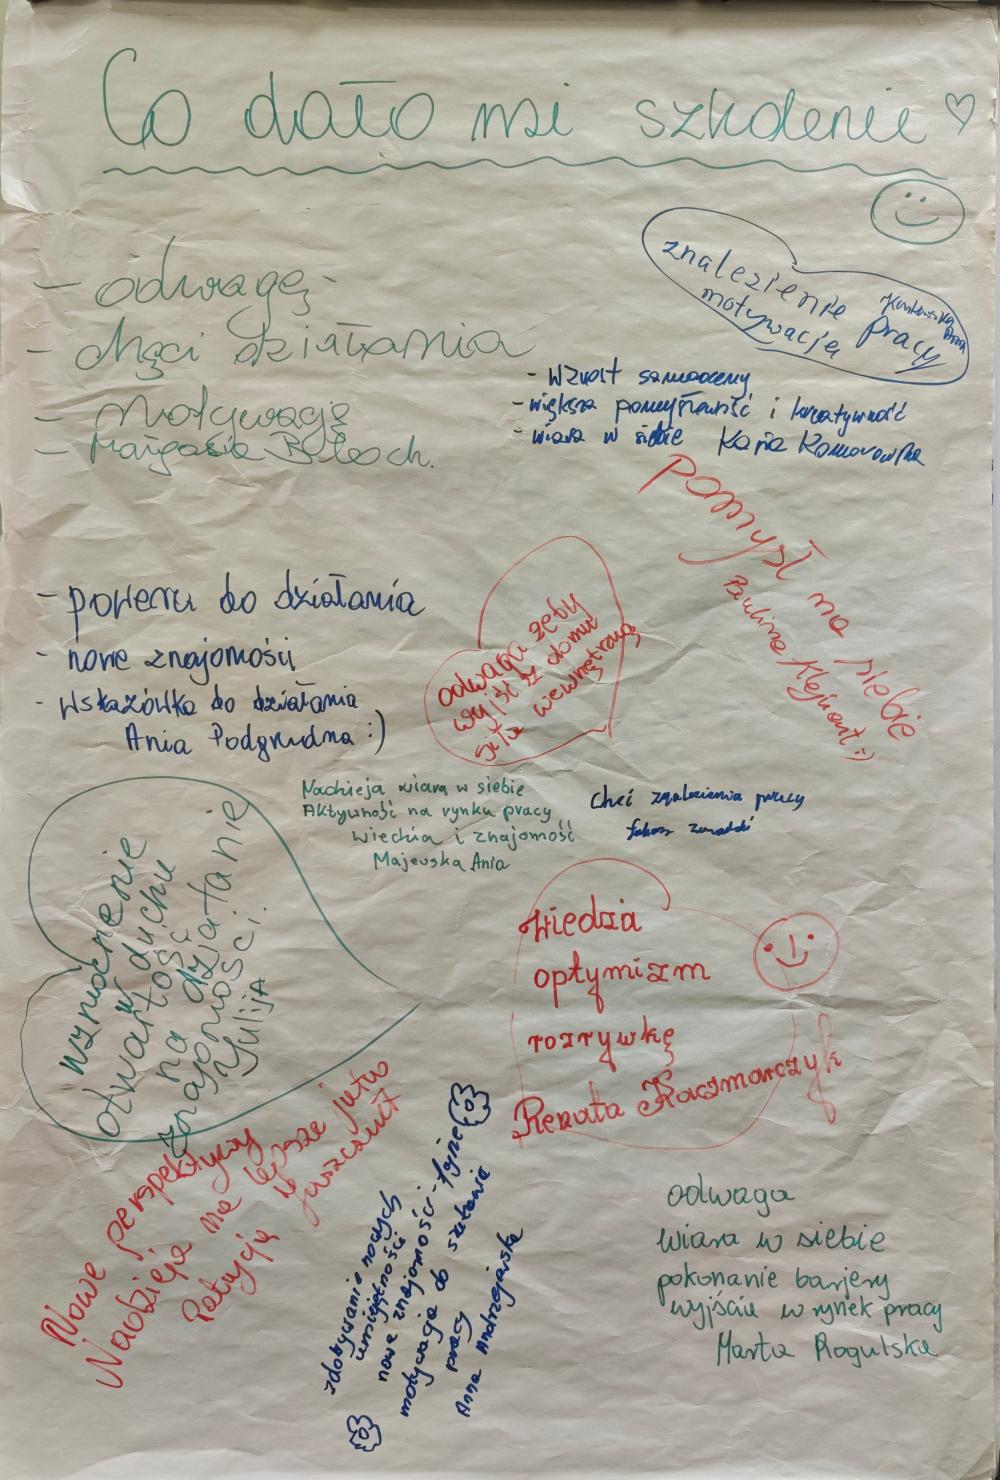 Co dało mi szkolenie
znalezienie pracy
motywacja
- odwagę
- chęci działania
- motywację
- Małgosia
- wzrost samooceny
- większa pomysłowość i kreatywność
- wiara w siebie Kasia Komorowska
pomysł na siebie
Paulina Klejment :)
- poweru do działania
- nowe znajomości
- wskazówka do działania
Ania Podgrudna :)
odwaga żeby
wyjść z domu
siła wewnętrzna
Nadzieja wiara w siebie
Aktywność na rynku pracy
Wiechia i znajomość
Majewska Ania
Chęć znalezienia pracy
wzmocnienie
w duchu
otwartość
na działanie
znajomości.
Yulija
wiedza
optymizm
rozrywkę
Renata Kaczmarczyk
Nowe perspektywy
Nadzieja na lepsze jutro
Patrycja Juszczak
zdobywanie nowych
umiejętności
nowe znajomości - fajne
motywacja do szukania
pracy
Anna Andrzejewska
odwaga
wiara w siebie
pokonanie barjery
wyjście w rynek pracy
Marta Rogulska